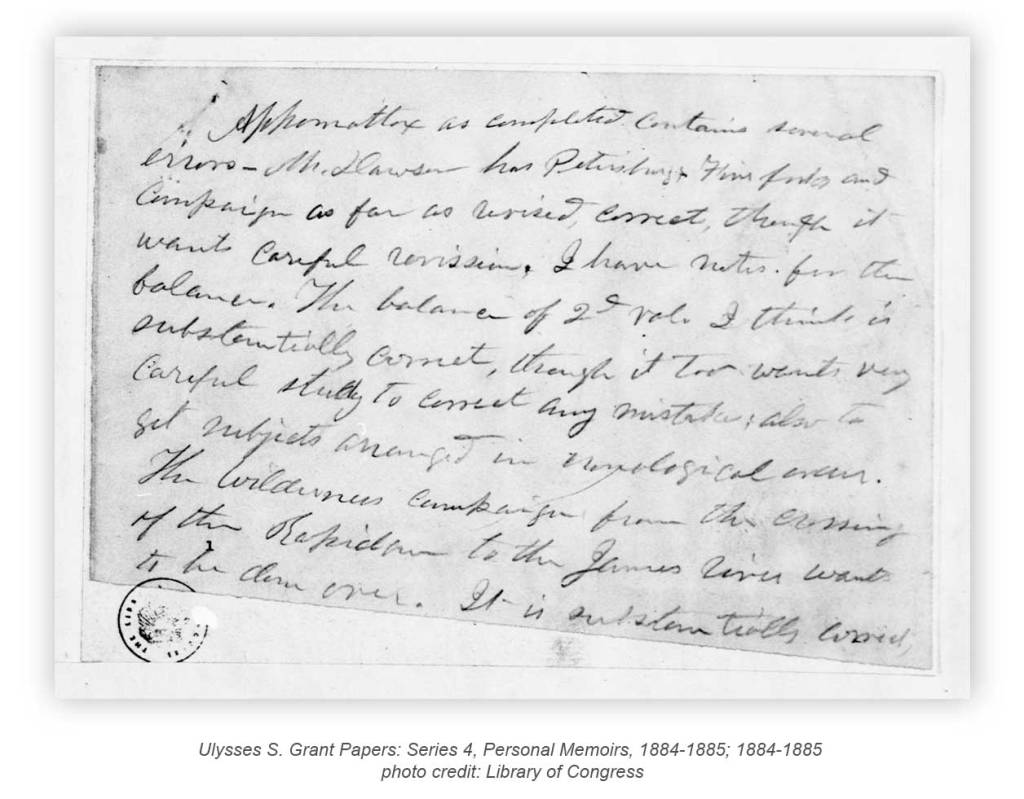 Appomattox as completed contains several
errors – Mr. Dawson has Petersburg, Five forks and
Campaign as far as revised, correct, though it
wants careful revission. I have notes for the
balance. The balance of 2d vol. I think is
substantially correct, though it too wants very
careful study to correct any mistake; also to
get subjects arranged in order.
The Wilderness campaign from the crossing
of the Rapidan to the James river wants
to be done over. It is substantially correct,
Ulysses S. Grant Papers: Series 4, Personal Memoirs, 1884-1885; 1884-1885
photo credit: Library of Congress